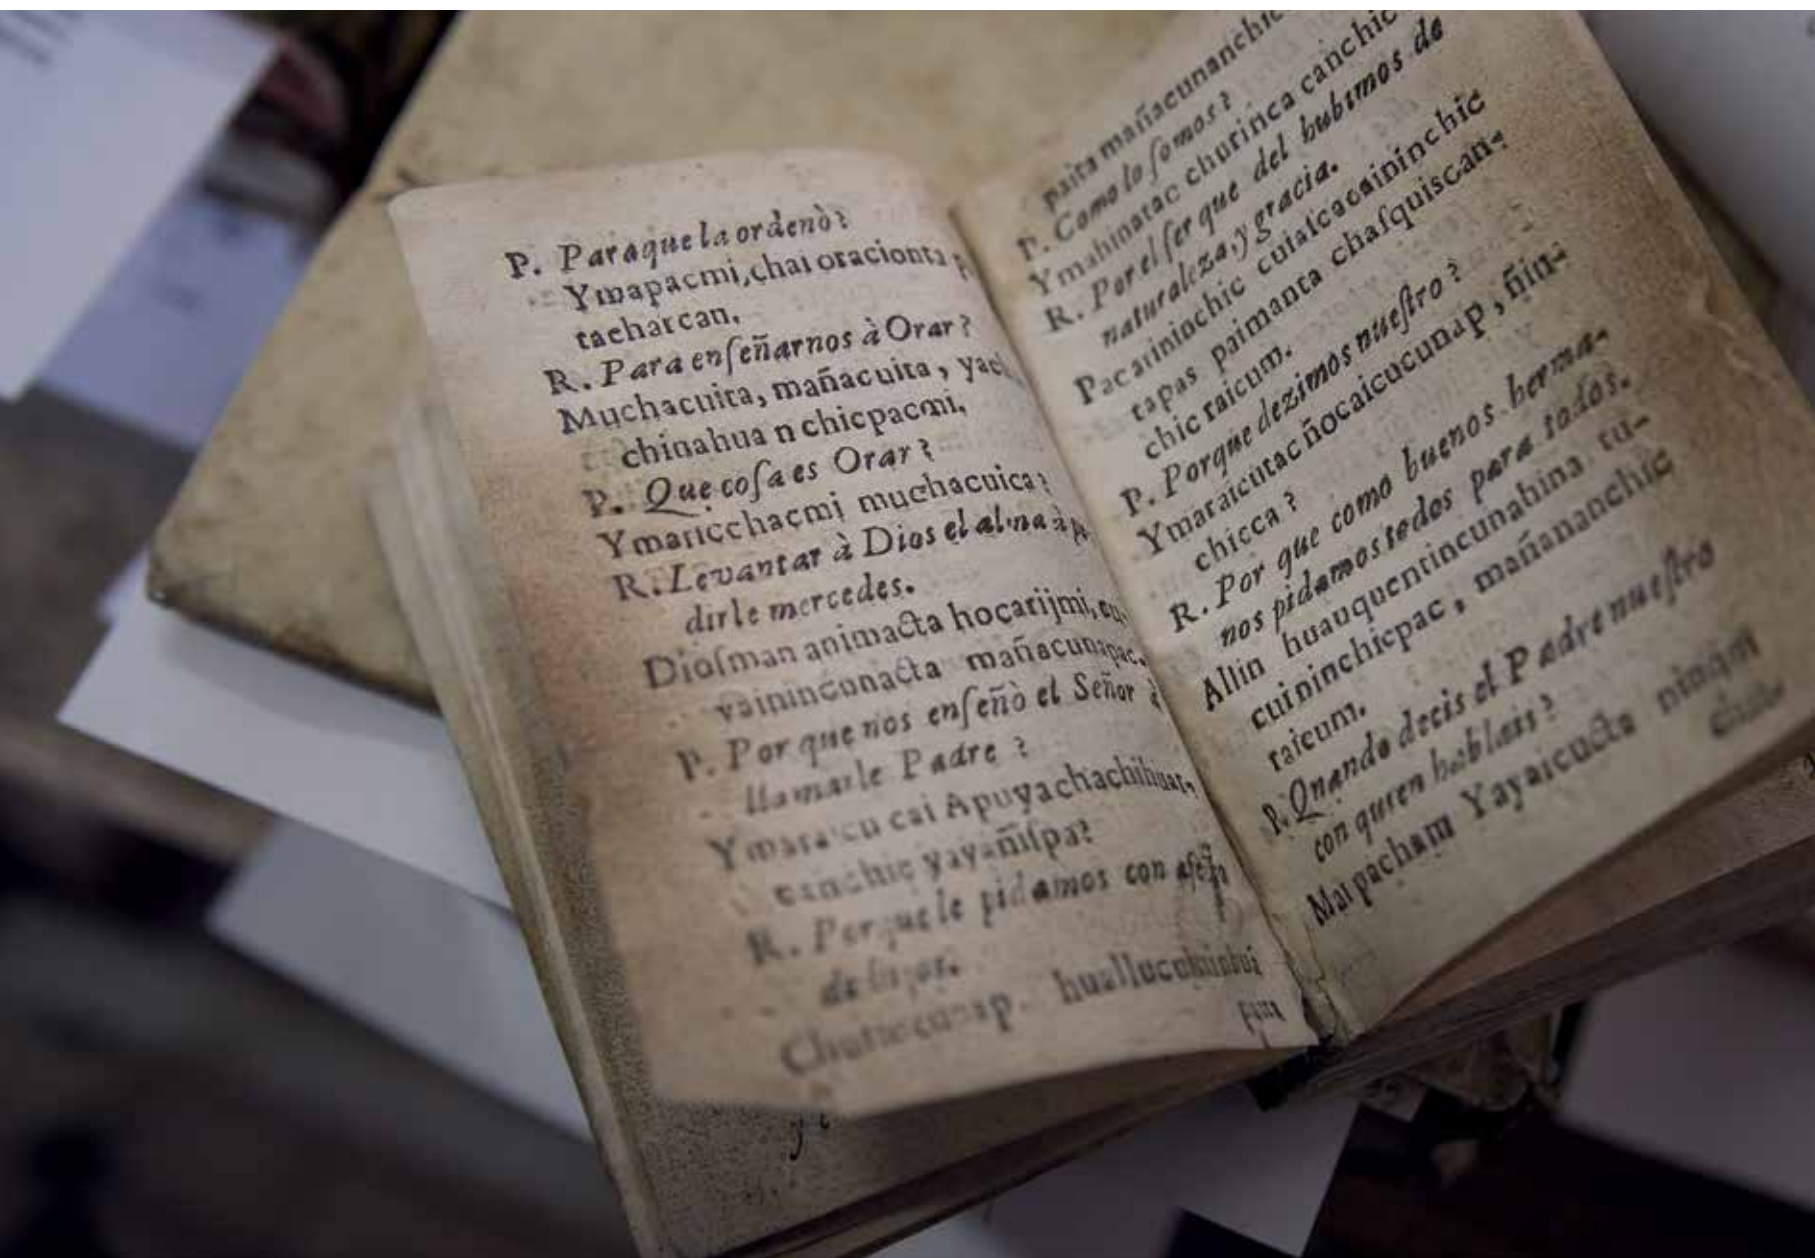 P. Paraque la ordenò?
Ymapacmi, chai oracionta
tacharcan.
R. Para enſeñarnos à Orar?
Muchacuita, mañacuita, yach
chinahua n chicpacmi.
P. Que coſa es Orar?
Ymaricchacmi muchacuica?
R. Levantar à Dios el alma à pe
dirle mercedes.
Dioſman animacta hocarijmi, cu
mañacunapac.
P. Por que nos enſeñò el Señor à
llamarle Padre?
Ymaraicu cai Apuyachachihuar-
canchic yayañiſpa?
R. Porque le pidamos con afecto
de hijos.
Churincunap
paita mañacunanchic
P. Como lo ſomos?
Ymahinatac churinca canchic
R. Por el ſer que del hubimos de
naturaleza, y gracia.
Pacarininchic cuiaicacaininchic
tapas paimanta chaſquiscan-
chic raicum.
P. Porque dezimos nueſtro?
Ymaraicutac ñocaicucunap, ñin-
chicca?
R. Por que como buenos herma-
nos pidamos todos para todos.
Allin huauquentincunahina cu-
cuininchicpac, mañananchic
raicum.
P. Quando decis el Padre nueſtro
con quien hablais?
Maipacham Yayaicucta ninqm